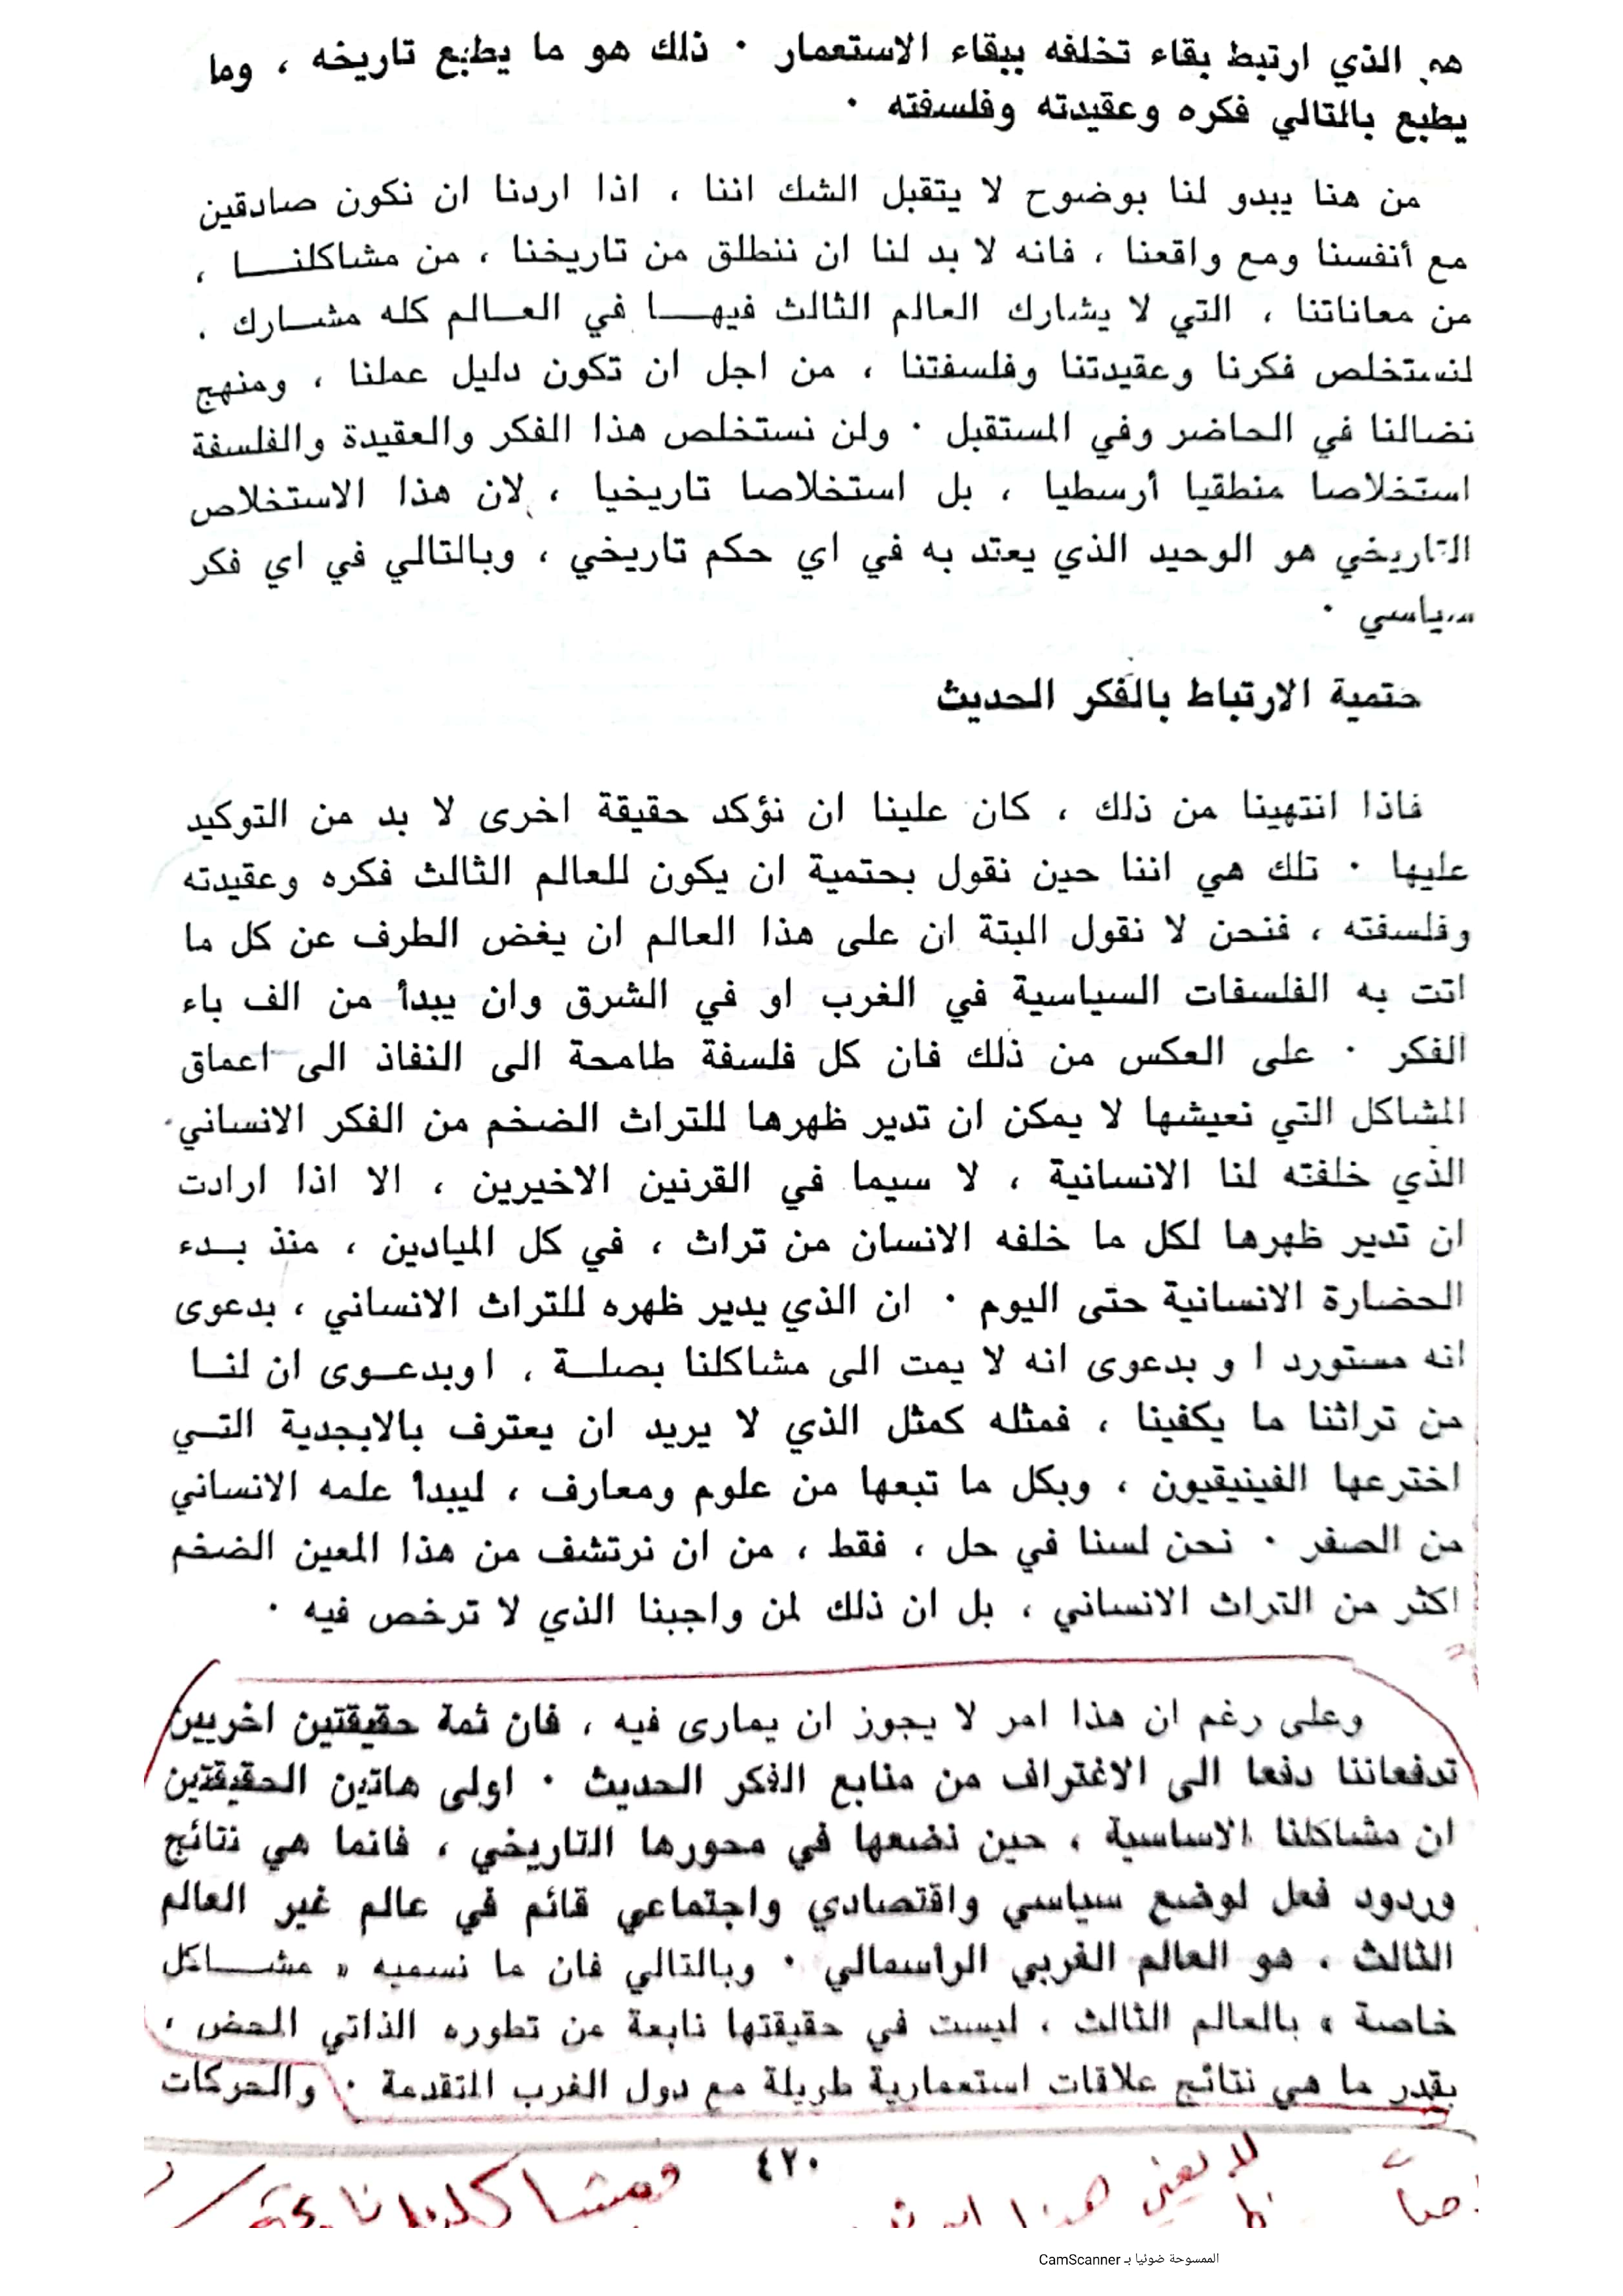 هم الذي ارتبط بقاء تخلفه ببقاء الاستعمار · ذلك هو ما يطبع تاريخه ، وما
يطبع بالتالي فكره وعقيدته وفلسفته ·
من هنا يبدو لنا بوضوح لا يتقبل الشك اننا ، اذا اردنا ان نكون صادقين
مع أنفسنا ومع واقعنا ، فانه لا بد لنا ان ننطلق من تاريخنا ، من مشاكلنـــا ،
من معاناتنا ، التي لا يشارك العالم الثالث فيهـــا في العــالم كله مشــارك .
لنستخلص فكرنا وعقيدتنا وفلسفتنا ، من اجل ان تكون دليل عملنا ، ومنهج
نضالنا في الحاضر وفي المستقبل · ولن نستخلص هذا الفكر والعقيدة والفلسفة
استخلاصا منطقيا أرسطيا ، بل استخلاصا تاريخيا ، لان هذا الاستخلاص
التاريخي هو الوحيد الذي يعتد به في اي حكم تاريخي ، وبالتالي في اي فكر
سياسي ·
حتمية الارتباط بالفكر الحديث
فاذا انتهينا من ذلك ، كان علينا ان نؤكد حقيقة اخرى لا بد من التوكيد
عليها · تلك هي اننا حين نقول بحتمية ان يكون للعالم الثالث فكره وعقيدته
وفلسفته ، فنحن لا نقول البتة ان على هذا العالم ان يغض الطرف عن كل ما
اتت به الفلسفات السياسية في الغرب او في الشرق وان يبدأ من الف باء
الفكر · على العكس من ذلك فان كل فلسفة طامحة الى النفاذ الى اعماق
المشاكل التي نعيشها لا يمكن ان تدير ظهرها للتراث الضخم من الفكر الانساني
الذي خلفته لنا الانسانية ، لا سيما في القرنين الاخيرين ، الا اذا ارادت
ان تدير ظهرها لكل ما خلفه الانسان من تراث ، في كل الميادين ، منذ بــدء
الحضارة الانسانية حتى اليوم · ان الذي يدير ظهره للتراث الانساني ، بدعوى
انه مستورد ا و بدعوى انه لا يمت الى مشاكلنا بصلــة ، اوبدعــوى ان لنــا
من تراثنا ما يكفينا ، فمثله كمثل الذي لا يريد ان يعترف بالابجدية التــي
اخترعها الفينيقيون ، وبكل ما تبعها من علوم ومعارف ، ليبدأ علمه الانساني
من الصفر · نحن لسنا في حل ، فقط ، من ان نرتشف من هذا المعين الضخم
اكثر من التراث الانساني ، بل ان ذلك لمن واجبنا الذي لا ترخص فيه ·
وعلى رغم ان هذا امر لا يجوز ان يمارى فيه ، فان ثمة حقيقتين اخريين
تدفعاننا دفعا الى الاغتراف من منابع الفكر الحديث · اولى هاتين الحقيقتين
ان مشاكلنا الاساسية ، حين نضعها في محورها التاريخي ، فانما هي نتائج
وردود فعل لوضع سياسي واقتصادي واجتماعي قائم في عالم غير العالم
الثالث ، هو العالم الغربي الراسمالي · وبالتالي فان ما نسميه « مشـــاكل
خاصة » بالعالم الثالث ، ليست في حقيقتها نابعة من تطوره الذاتي المحض ،
بقدر ما هي نتائج علاقات استعمارية طويلة مع دول الغرب المتقدمة · والحركات
٤٢٠
لا يعني هذا
ومشاكلنا
الممسوحة ضوئيا بـ CamScanner